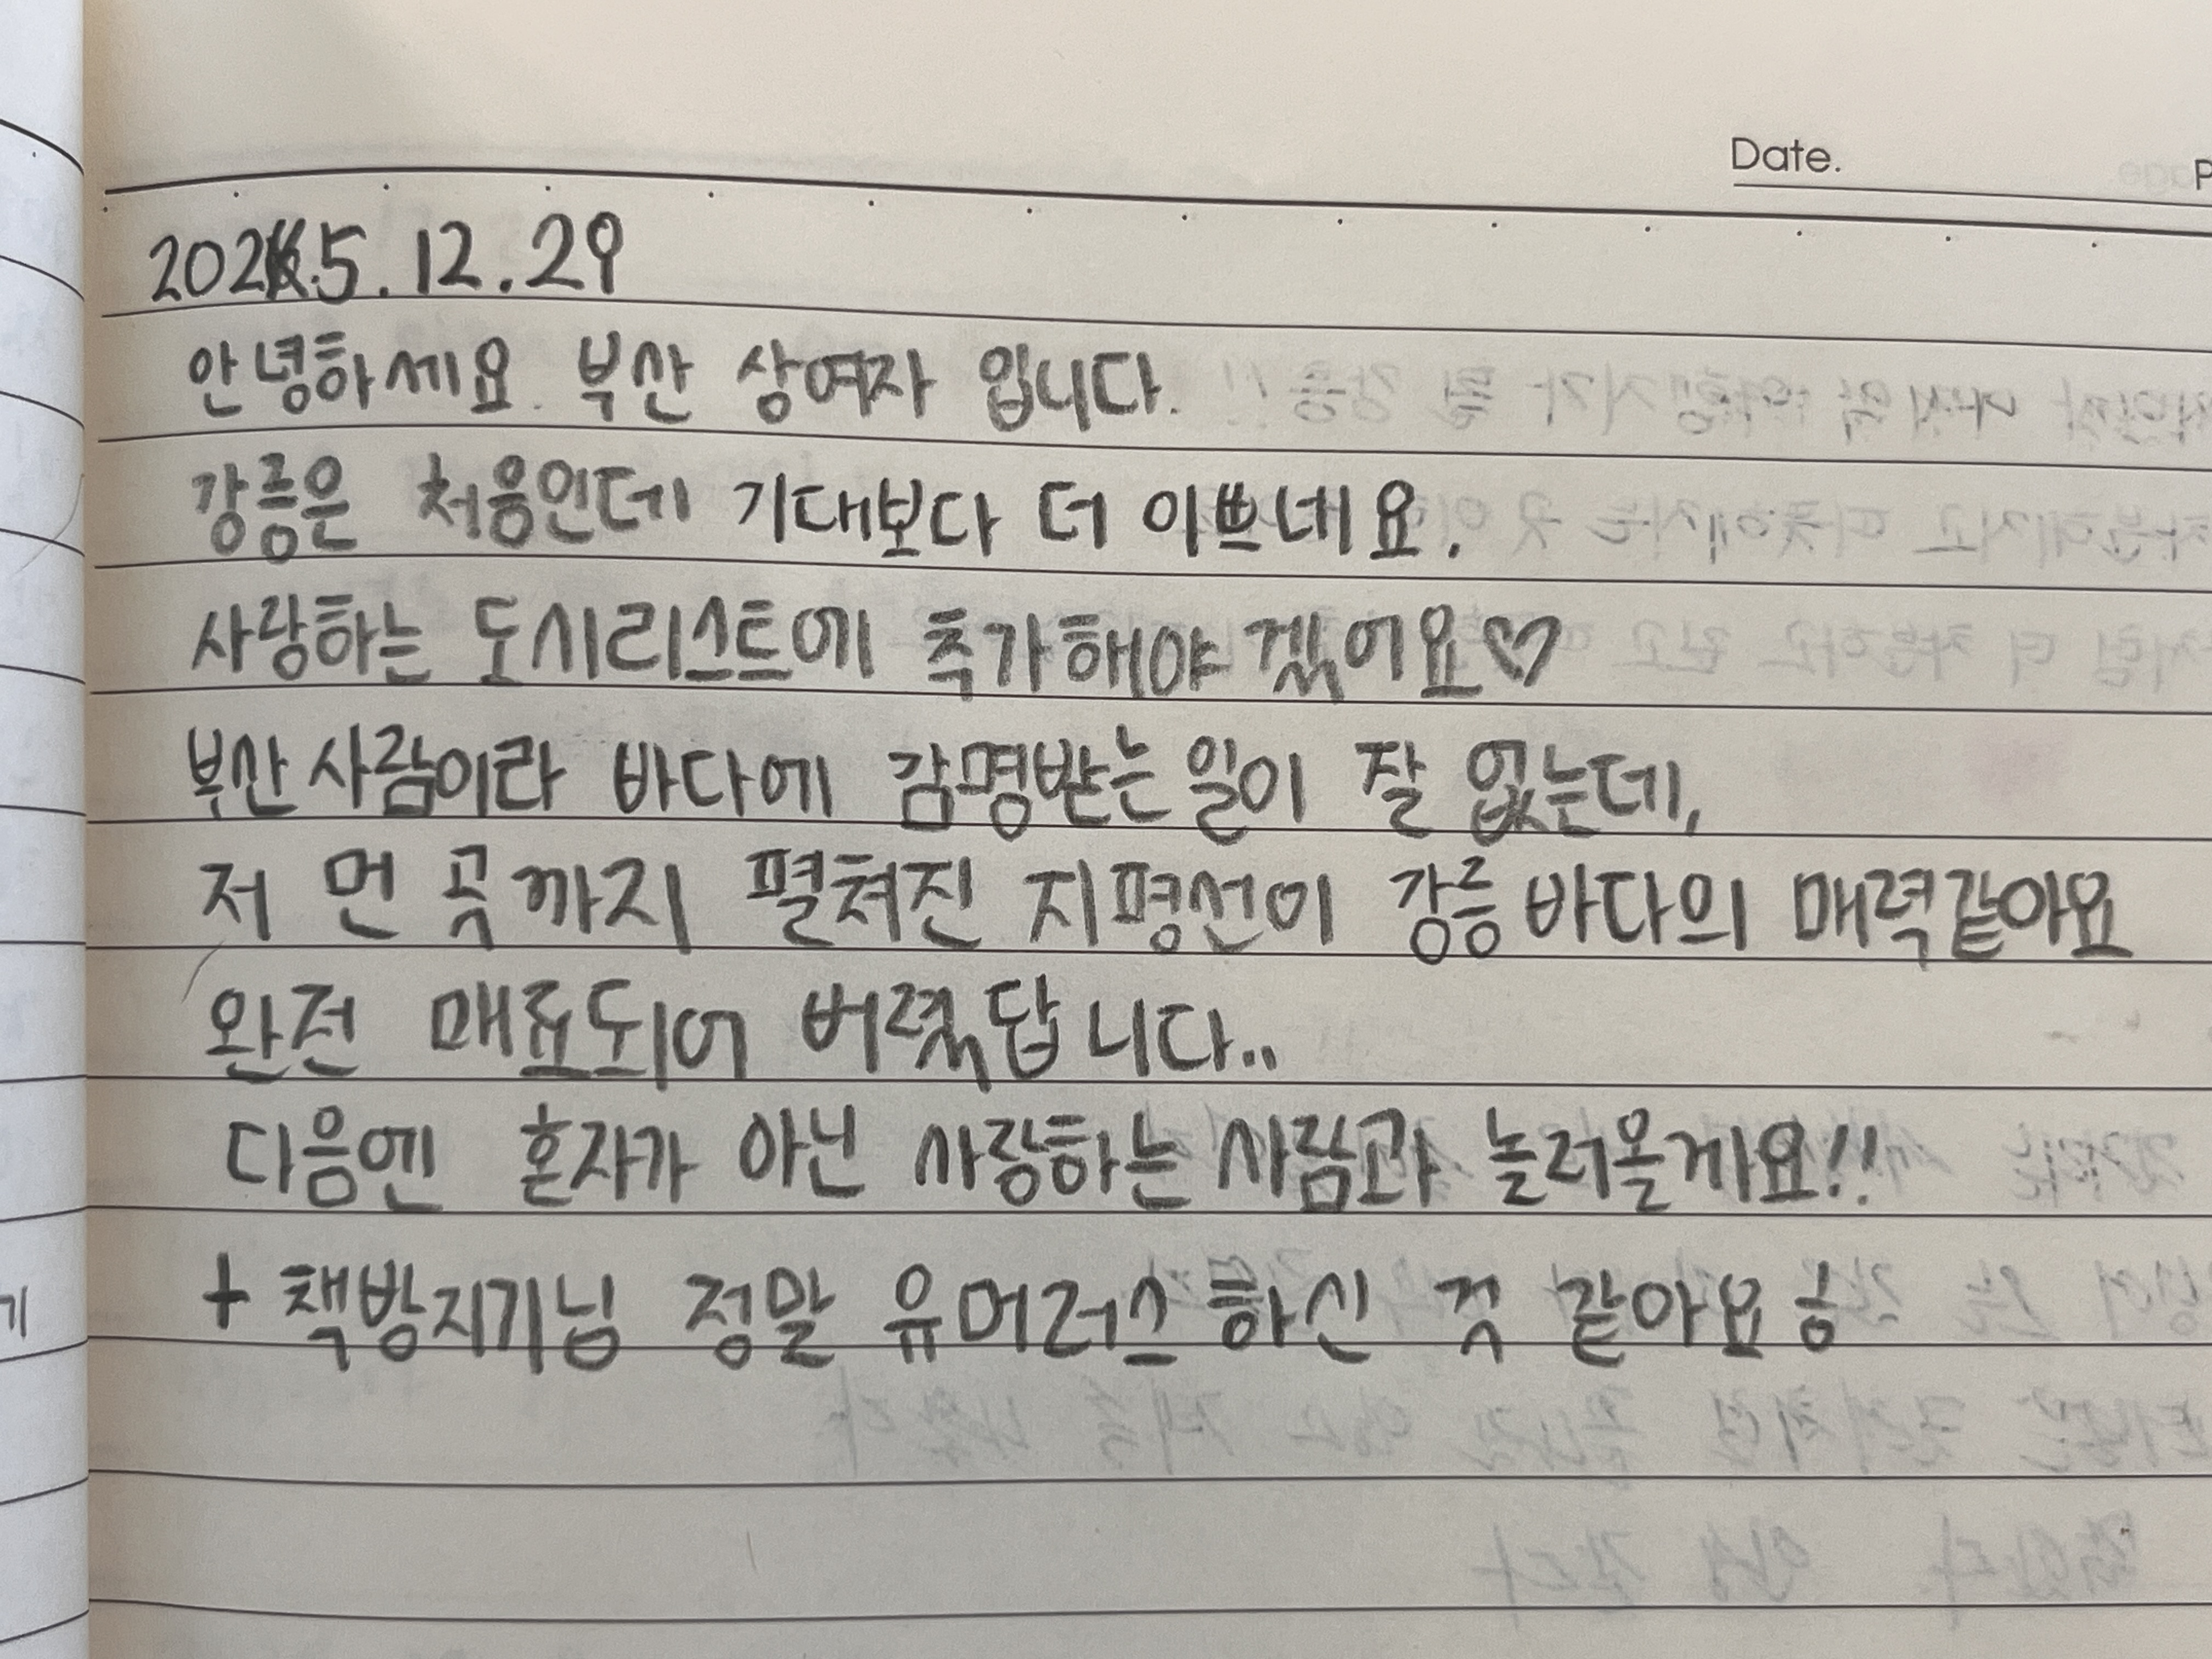 Date.
2025.12.29
안녕하세요. 부산 상여자 입니다.
강릉은 처음인데 기대보다 더 이쁘네요.
사랑하는 도시리스트에 추가해야겠어요♡
부산사람이라 바다에 감명받는일이 잘 없는데,
저 먼 곳까지 펼쳐진 지평선이 강릉바다의 매력같아요
완전 매료되어 버렸답니다..
다음엔 혼자가 아닌 사랑하는사람과 놀러올게요!!
+ 책방지기님 정말 유머러스하신 것 같아요 ㅎ